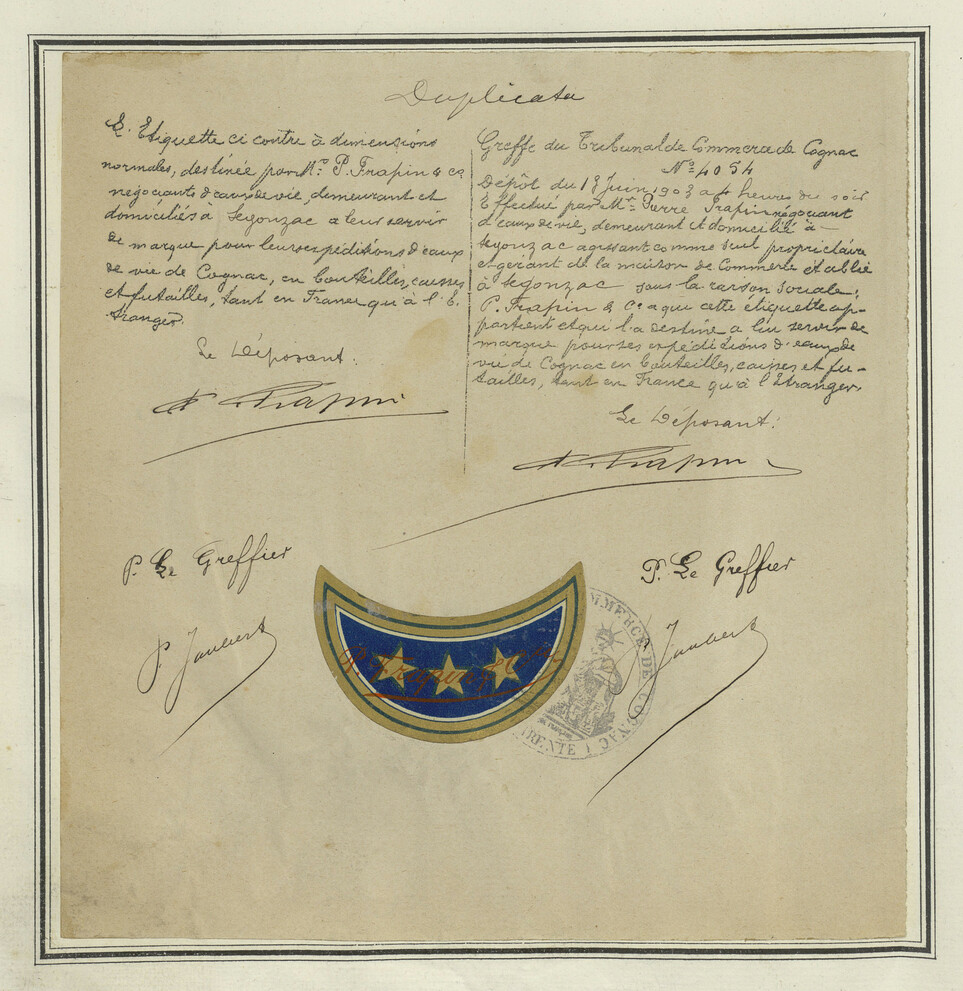 Duplicata
L'Etiquette ci contre à dimensions
normales, destinée par Mr. P. Frapin & Ce
négociants d'eaux de vie, demeurant et
domiciliés à Segonzac a leur servir
de marque pour leurs expéditions d'eaux
de vie de Cognac, en bouteilles, caisses
et futailles, tant en France qu'à l'E
tranger.
Le Déposant.
P. Frapin
Greffe du Tribunal de Commerce de Cognac
No 4054
Dépôt du 13 Juin 1903 a 4 heures du soir
Effectué par Mr. Pierre Frapin négociant
d'eaux de vie, demeurant et domicilié à
Segonzac agissant comme seul propriétaire
et gérant de la maison de Commerce établie
à Segonzac sous la raison sociale:
P. Frapin & Ce a qui cette étiquette ap-
partient et qui l'a destiné a lui servir de
marque pour ses expéditions d'eaux de
vie de Cognac en bouteilles, caisses et fu-
tailles, tant en France qu'à l'Etranger.
Le Déposant:
P. Frapin
P. Le Greffier
P. Le Greffier
P. Jaubert
P. Jaubert
P. Frapin & Co
COMMERCE DE COGNAC